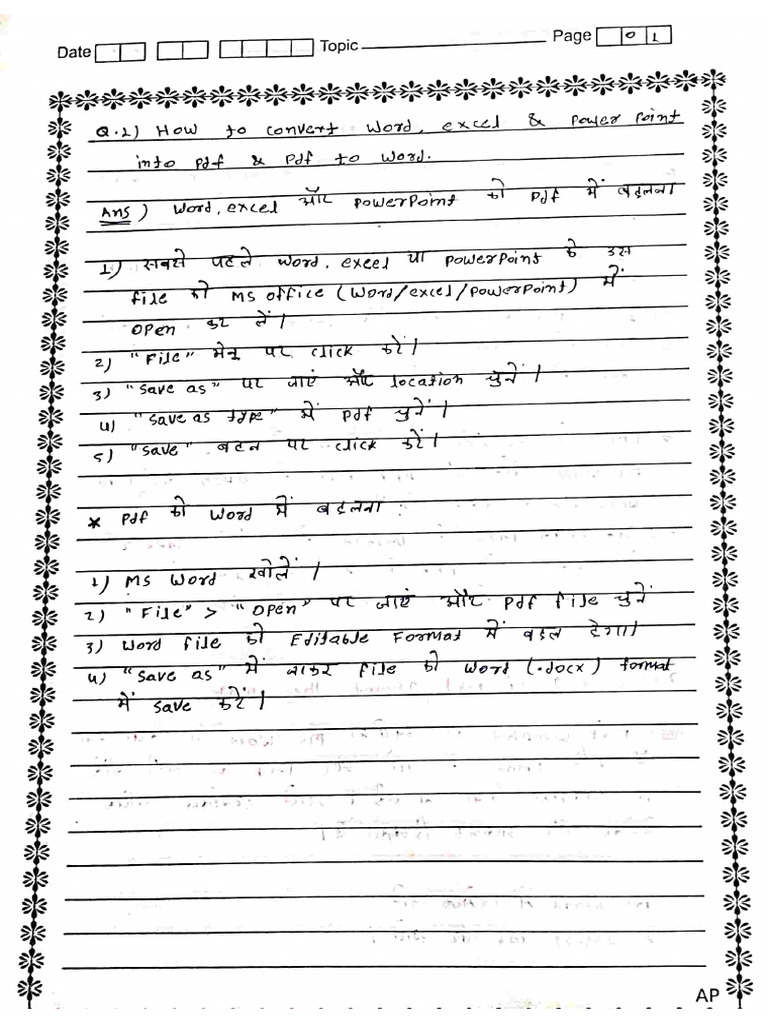 Date Topic Page 01
Q.1) How to convert Word, excel & Power Point
into pdf & Pdf to Word.
Ans) Word, excel और PowerPoint को Pdf में बदलना
1) सबसे पहले Word, excel या PowerPoint के उस
file को MS office (Word/excel/PowerPoint) में
open कर लें।
2) "File" मेनू पर click करें।
3) "Save as" पर जाएं और location चुनें।
4) "Save as type" में Pdf चुनें।
5) "Save" बटन पर click करें।
* Pdf को Word में बदलना :
1) MS Word खोलें।
2) "File" > "Open" पर जाएं और Pdf file चुनें
3) Word file को Editable Format में बदल देगा।
4) "Save as" में जाकर file को Word (.docx) format
में save करें।
AP